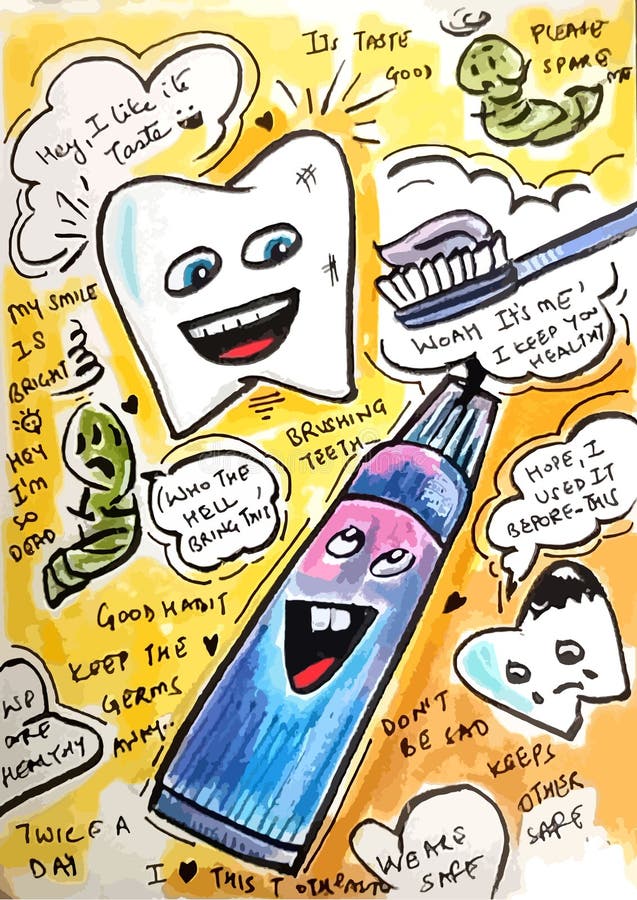 Hey, I like its
Taste
ITS TASTE
GOOD
PLEASE
SPARE
ME
WOAH IT'S ME,
I KEEP YOU
HEALTHY
MY SMILE
IS
BRIGHT
HEY
I'M
SO
DEAD
BRUSHING
TEETH...
WHO THE
HELL
BRING THIS
HOPE, I
USED IT
BEFORE-THIS
GOOD HABIT
KEEP THE
GERMS
AWAY..
WE
ARE
HEALTHY
DON'T
BE SAD
KEEPS
OTHER
SAFE
TWICE A
DAY
I ♥ THIS
WE ARE
SAFE
dreamstime